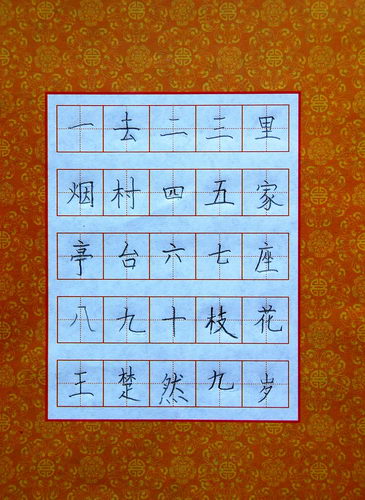 一去二三里
烟村四五家
亭台六七座
八九十枝花
王楚然九岁